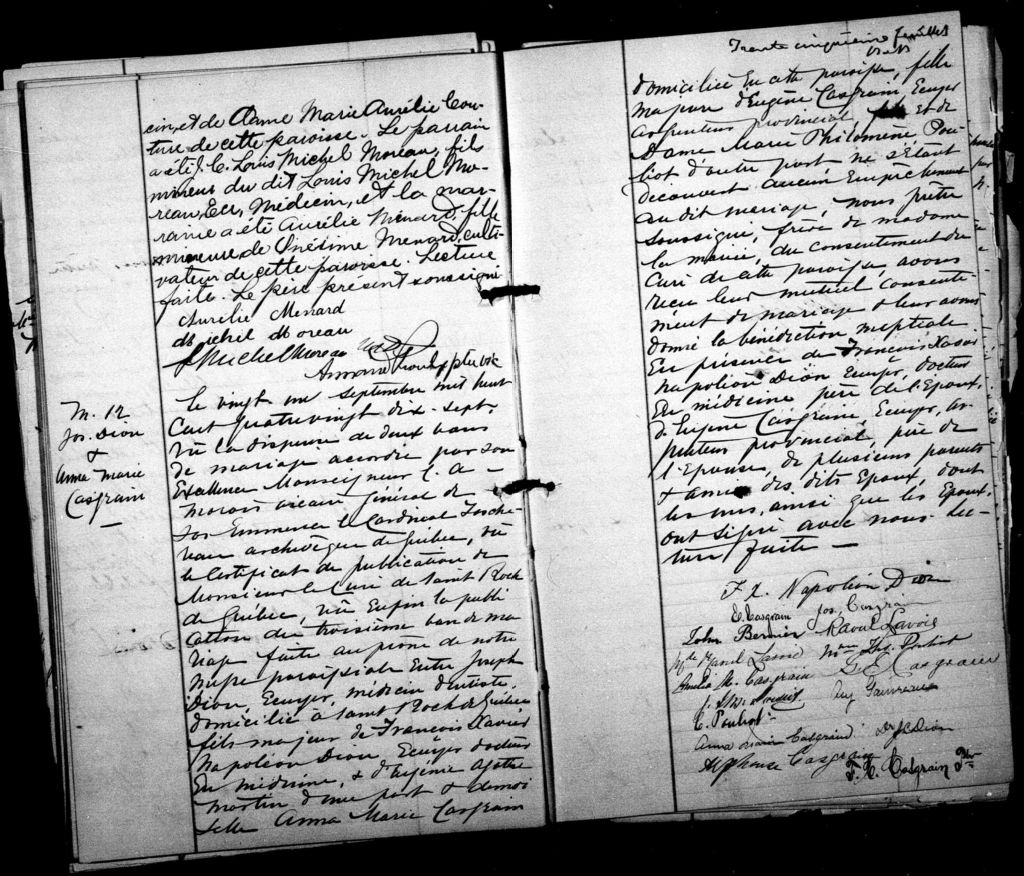 cin, et de Dame Marie Aurélie Cou-
ture de cette paroisse. Le parrain
a été J. C. Louis Michel Moreau, fils
mineur du dit Louis Michel Mo-
reau, Ecr, Médecin, et la mar-
raine a été Aurélie Ménard, fille
mineure de Onésime Menard, culti-
vateur de cette paroisse. Lecture
faite. Le père présent a soussigné
Aurélie Menard
Michel Moreau
L Michel Moreau
M. 12
Jos. Dion
&
Anna Marie
Casgrain
Le vingt un septembre mil huit
cent quatre vingt dix-sept,
vû la dispense de deux bans
de mariage accordée par son
Excellence Monseigneur C. A
Marois vicaire Général de
son Eminence le Cardinal Tasche-
reau archevêque de Québec, vû
le certificat de publication de
Monsieur le Curé de Saint Roch
de Québec, vû enfin la publi
cation du troisième ban de ma
riage faite au prône de notre
messe paroissiale entre Joseph
Dion, Ecuyer, médecin dentiste,
domicilié à Saint Roch de Québec
fils majeur de François Xavier
Napoléon Dion, Ecuyer docteur
en médecine, & d'Eugénie
Martin d'une part & demoi
selle Anna Marie Casgrain
Trente cinquième feuillet
domiciliée en cette paroisse, fille
majeure d'Eugène Casgrain, Ecuyer
Arpenteur provincial, et de
Dame Marie Philomène Pou-
liot d'autre part ne s'étant
découvert aucun empêchement
au dit mariage, nous prêtre
soussigné, frère de madame
la mariée, du consentement du
Curé de cette paroisse, avons
reçu leur mutuel consente
ment de mariage & leur avons
donné la bénédiction nuptiale
en présence de François Xavier
Napoléon Dion Ecuyer, docteur
en médecine père de l'Epoux,
d'Eugène Casgrain, Ecuyer, ar
penteur provincial, père de
l'Epouse, de plusieurs parents
& amis des dits Epoux, dont
les uns, ainsi que les Epoux,
ont signé avec nous. Lec-
ture faite —
F. X. Napoléon Dion
E. Casgrain Jos. Casgrain
John Bernier Raoul Lavoie
Pouliot
Amélie M. Casgrain G. E. Casgrain
Eug Gauvreau
C. Pouliot
Anna Marie Casgrain Dr J. C. Dion
Alphonse Casgrain
F. E. Casgrain Ptre